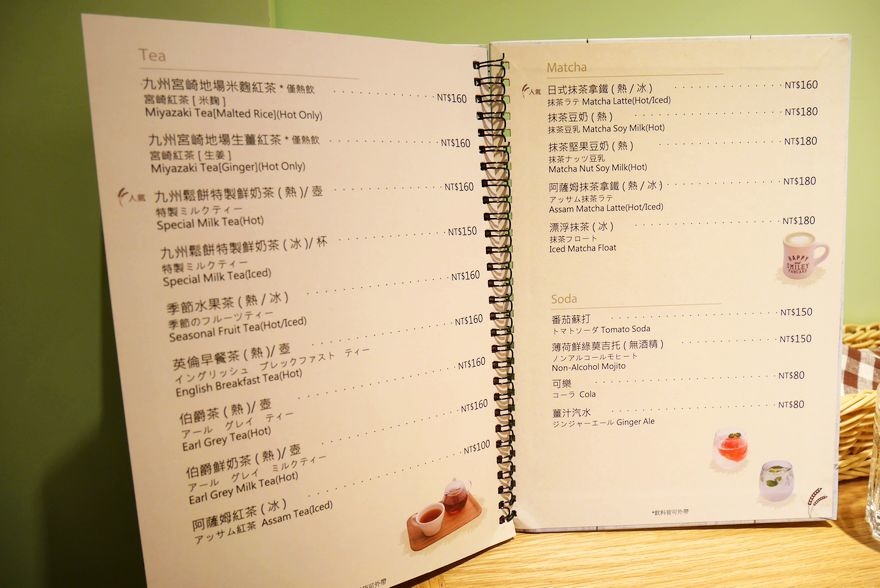 Tea
九州宮崎地場米麴紅茶 * 僅熱飲 NT$160
宮崎紅茶 [ 米麴 ]
Miyazaki Tea[Malted Rice](Hot Only)
九州宮崎地場生薑紅茶 * 僅熱飲 NT$160
宮崎紅茶 [ 生姜 ]
Miyazaki Tea[Ginger](Hot Only)
人氣 九州鬆餅特製鮮奶茶 ( 熱 )/ 壺 NT$160
特製ミルクティー
Special Milk Tea(Hot)
九州鬆餅特製鮮奶茶 ( 冰 )/ 杯 NT$150
特製ミルクティー
Special Milk Tea(Iced)
季節水果茶 ( 熱 / 冰 ) NT$160
季節のフルーツティー
Seasonal Fruit Tea(Hot/Iced)
英倫早餐茶 ( 熱 )/ 壺 NT$160
イングリッシュ ブレックファスト ティー
English Breakfast Tea(Hot)
伯爵茶 ( 熱 )/ 壺 NT$160
アール グレイ ティー
Earl Grey Tea(Hot)
伯爵鮮奶茶 ( 熱 )/ 壺 NT$160
アール グレイ ミルクティー
Earl Grey Milk Tea(Hot)
阿薩姆紅茶 ( 冰 ) NT$100
アッサム紅茶 Assam Tea(Iced)
可外帶
Matcha
人氣 日式抹茶拿鐵 ( 熱 / 冰 ) NT$160
抹茶ラテ Matcha Latte(Hot/Iced)
抹茶豆奶 ( 熱 ) NT$180
抹茶豆乳 Matcha Soy Milk(Hot)
抹茶堅果豆奶 ( 熱 ) NT$180
抹茶ナッツ豆乳
Matcha Nut Soy Milk(Hot)
阿薩姆抹茶拿鐵 ( 熱 / 冰 ) NT$180
アッサム抹茶ラテ
Assam Matcha Latte(Hot/Iced)
漂浮抹茶 ( 冰 ) NT$180
抹茶フロート
Iced Matcha Float
HAPPY
SMILEY
PANCAKE
Soda
番茄蘇打 NT$150
トマトソーダ Tomato Soda
薄荷鮮綠莫吉托 ( 無酒精 ) NT$150
ノンアルコールモヒート
Non-Alcohol Mojito
可樂 NT$80
コーラ Cola
薑汁汽水 NT$80
ジンジャーエール Ginger Ale
*飲料皆可外帶